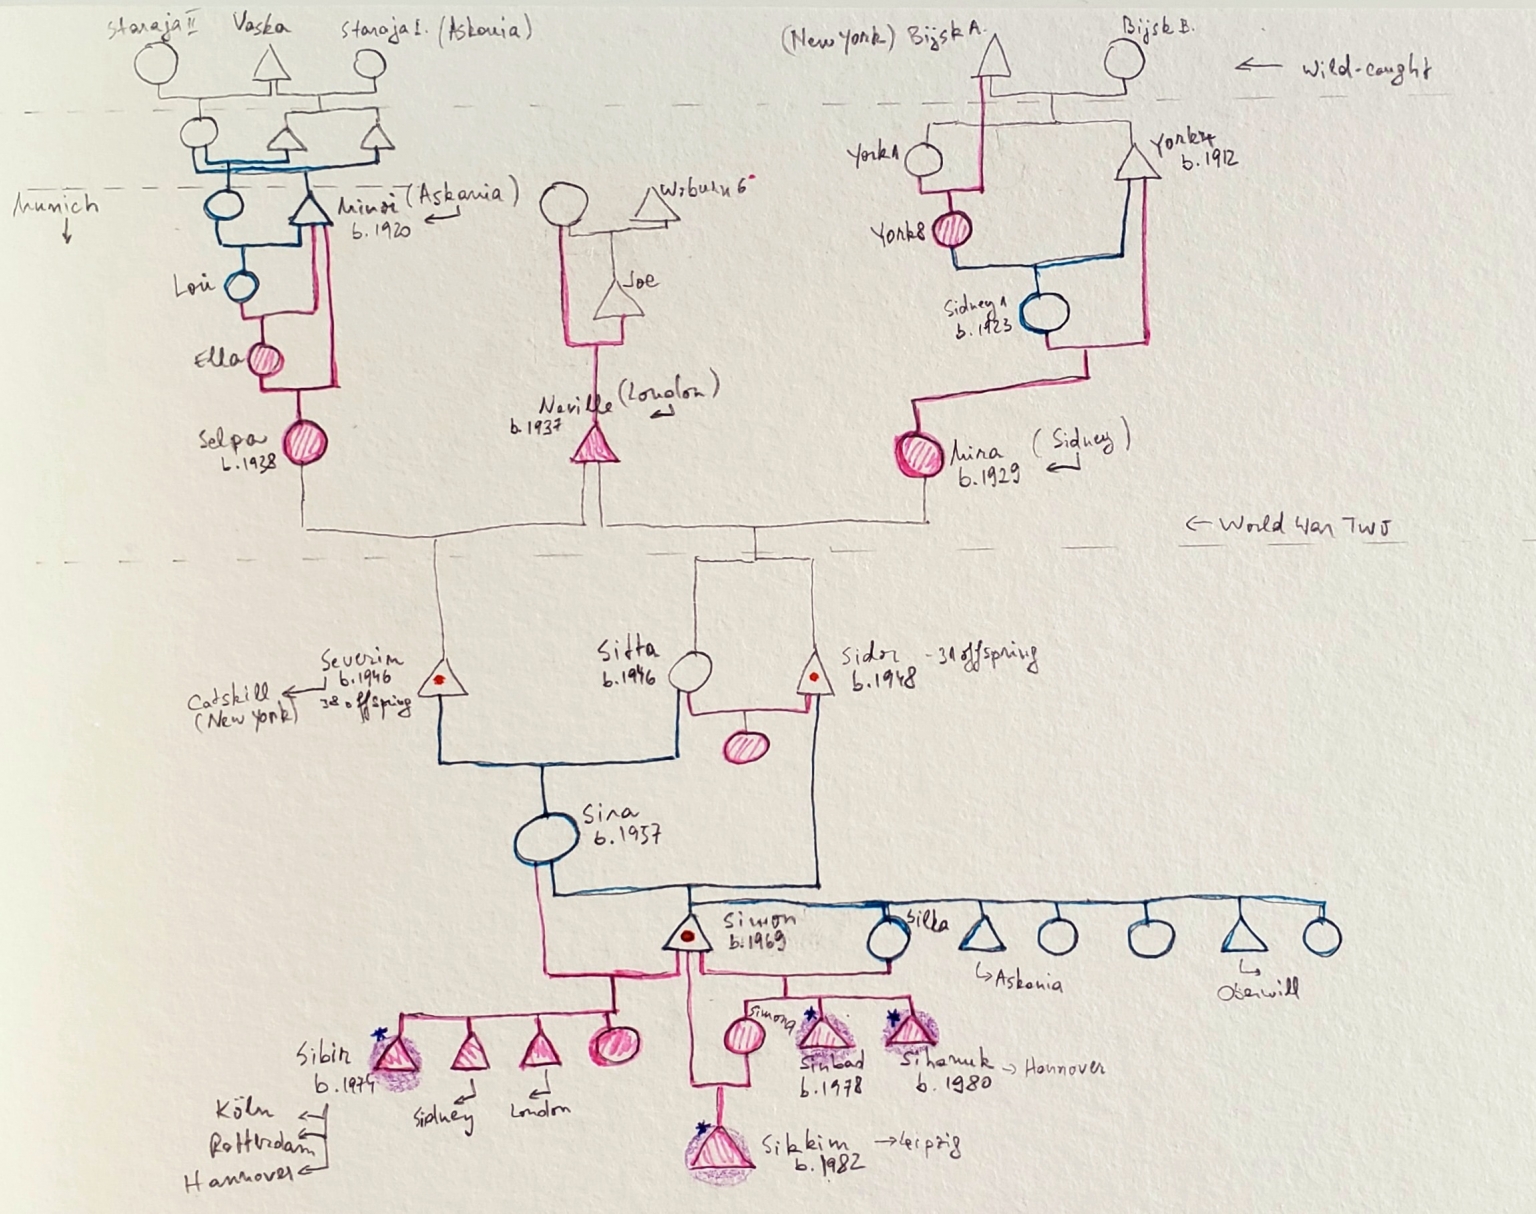 Staraja II
Vaska
Staraja I. (Askania)
(New York) Bijsk A.
Bijsk B.
← Wild-caught
York 1
York 4
b. 1912
Munich
Minsi (Askania)
b. 1920
Woburn 6
York 8
Lori
Joe
Sidney 1
b. 1923
Ella
Neville (London)
b. 1937
Selpa
b. 1938
Mira (Sidney)
b. 1929
← World War Two
Severin
b. 1946
38 offspring
Catskill
(New York)
Sitta
b. 1946
Sidor - 31 offspring
b. 1948
Sina
b. 1957
Simon
b. 1969
Silka
Askania
Oberwill
Simona
Sibir
b. 1974
Sinbad
b. 1978
Sihanuk → Hannover
b. 1980
Sidney
London
Köln
Rotterdam
Hannover
Sikkim → Leipzig
b. 1982